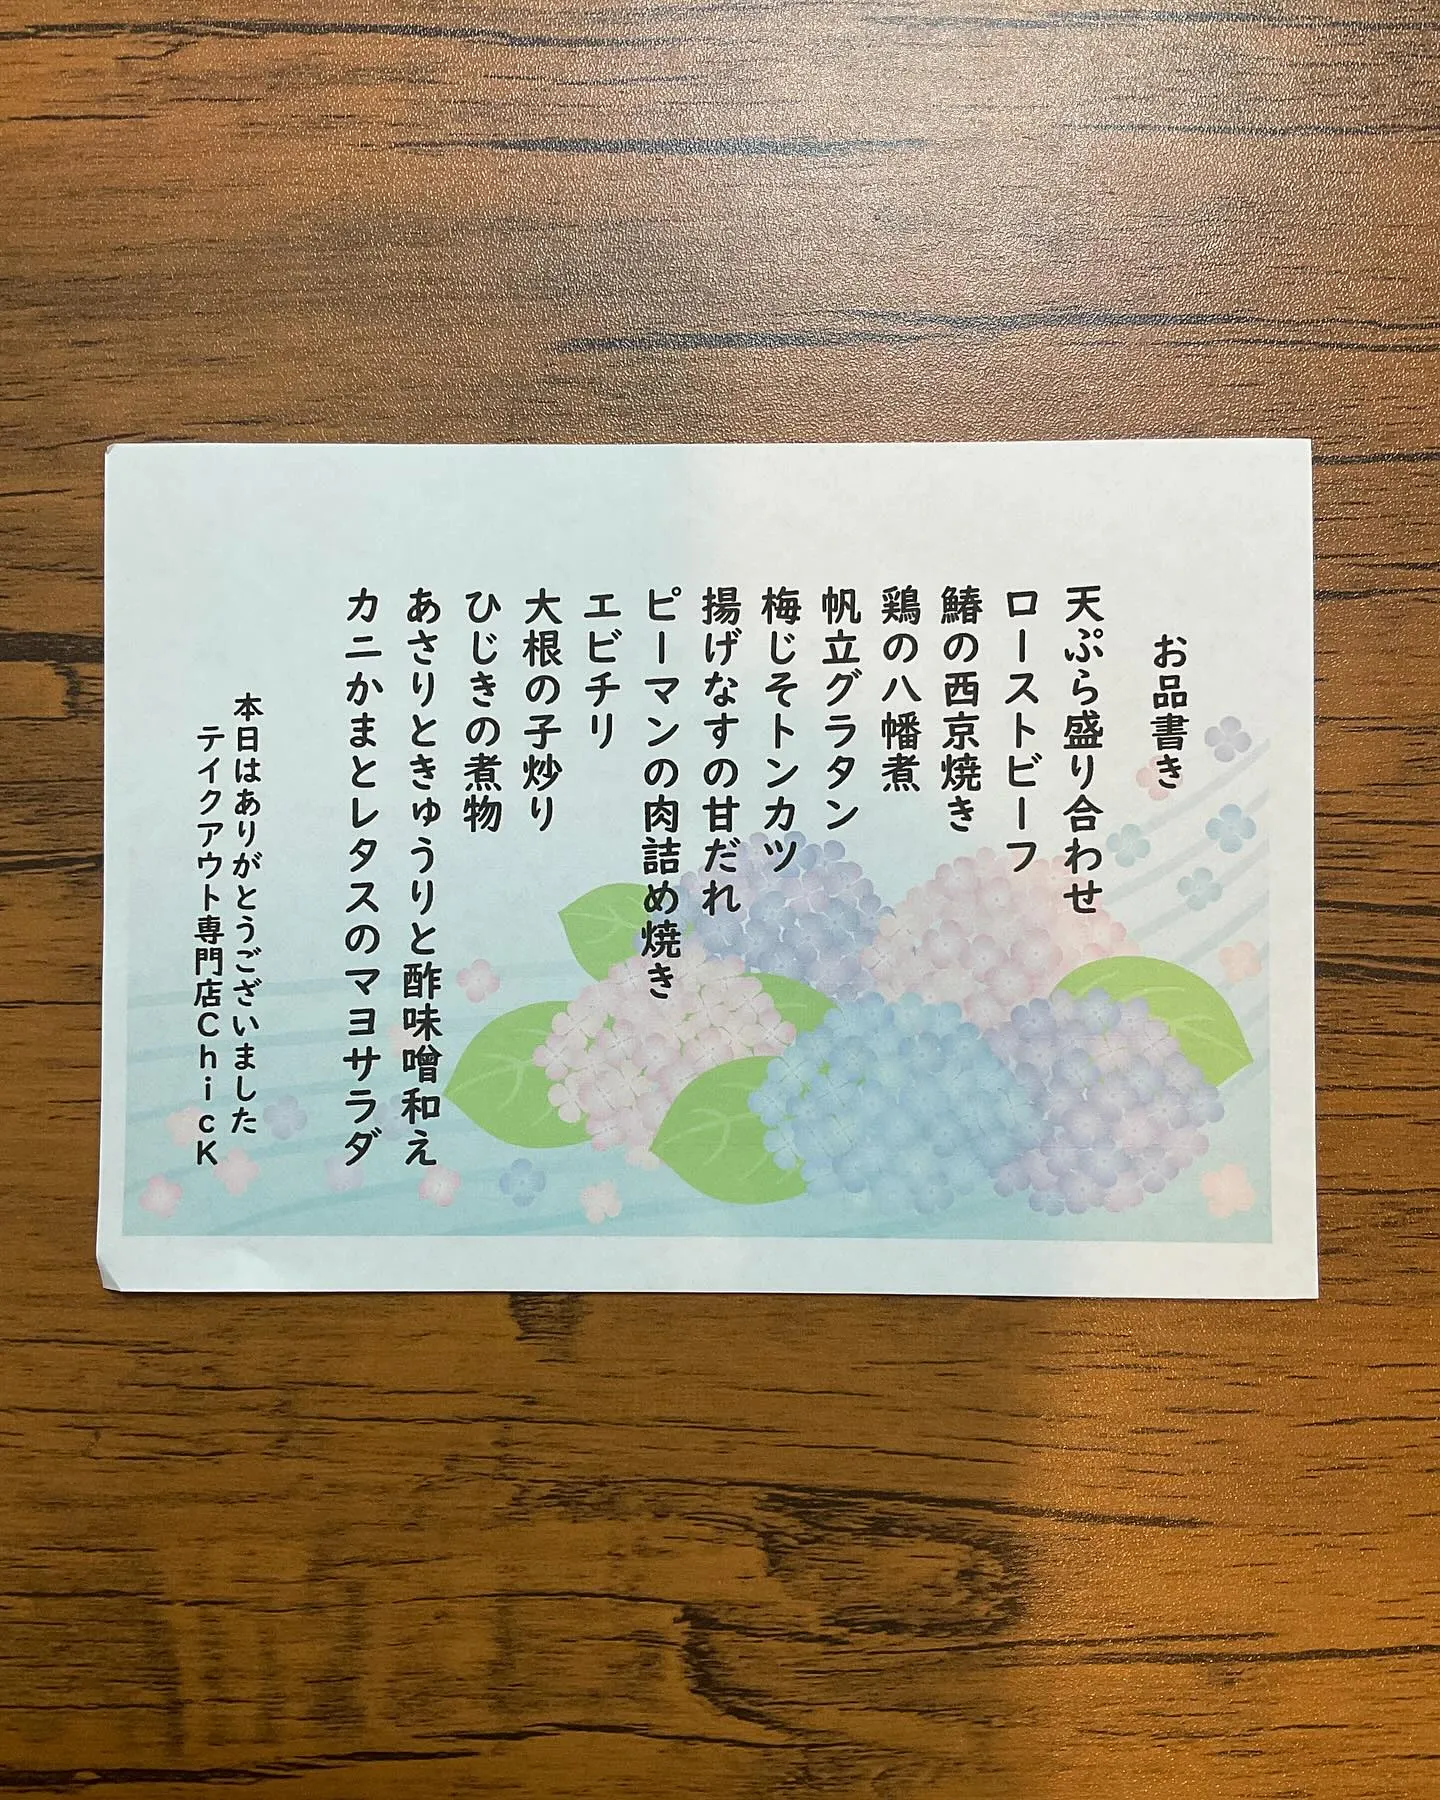 お品書き
天ぷら盛り合わせ
ローストビーフ
鰆の西京焼き
鶏の八幡煮
帆立グラタン
梅じそトンカツ
揚げなすの甘だれ
ピーマンの肉詰め焼き
エビチリ
大根の子炒り
ひじきの煮物
あさりときゅうりと酢味噌和え
カニかまとレタスのマヨサラダ
本日はありがとうございました
テイクアウト専門店ChicK